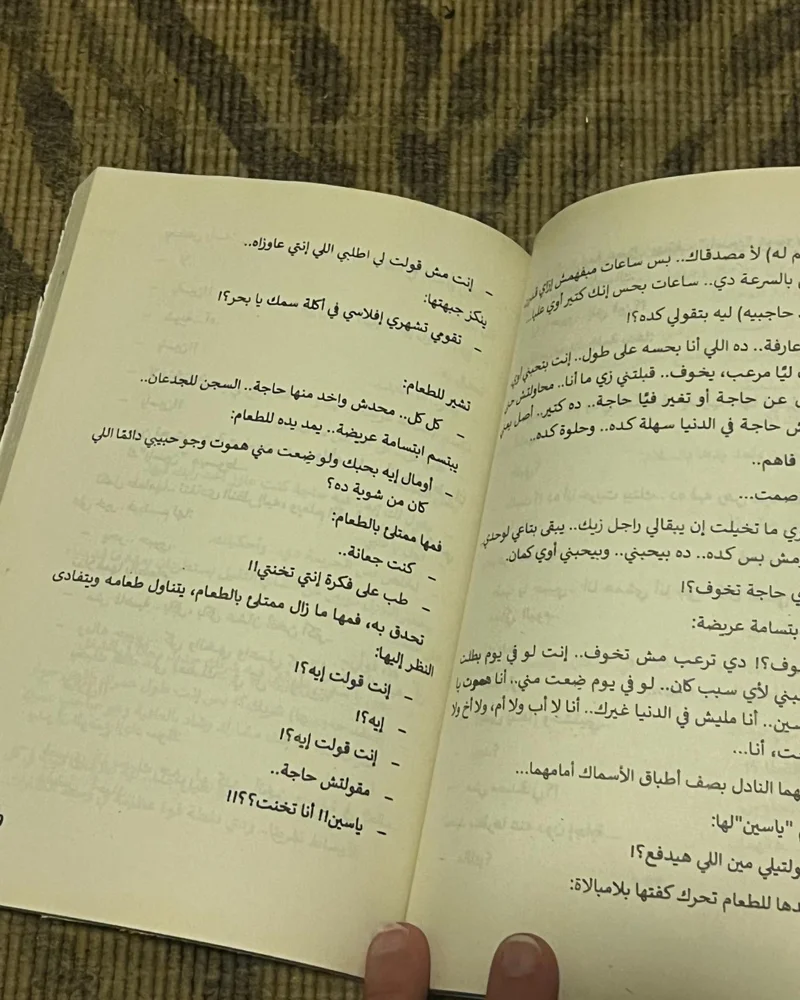 م له) لأ مصدقاك.. بس ساعات مبفهمش إزاي
بالسرعة دي.. ساعات بحس إنك كتير أوي عليا..
حاجبيه) ليه بتقولي كده؟!
عارفة.. ده اللي أنا بحسه على طول.. إنت بتحبني
ليًا مرعب، يخوف.. قبلتني زي ما أنا.. محاولتش
عن حاجة أو تغير فيًا حاجة.. ده كتير.. أصل
ش حاجة في الدنيا سهلة كده.. وحلوة كده..
فاهم..
صمت...
زي ما تخيلت إن يبقالي راجل زيك.. يبقى بتاعي لوحدي
ومش بس كده.. ده بيحبني.. وبيحبني أوي كمان.
ي حاجة تخوف؟!
بتسامة عريضة:
خوف؟! دي ترعب مش تخوف.. إنت لو في يوم بطلت
حبني لأي سبب كان.. لو في يوم ضِعت مني.. أنا هموت يا
سين.. أنا مليش في الدنيا غيرك.. أنا لا أب ولا أم، ولا أخ ولا
ت، أنا...
هما النادل بصف أطباق الأسماك أمامهما...
"ياسين" لها:
ولتيلي مين اللي هيدفع؟!
دها للطعام تحرك كفتها بلامبالاة:
– إنت مش قولت لي اطلبي اللي إنتي عاوزاه..
ينكز جبهتها:
– تقومي تشهري إفلاسي في أكلة سمك يا بحر؟!
تشير للطعام:
– كل كل.. محدش واخد منها حاجة.. السجن للجدعان..
يبتسم ابتسامة عريضة.. يمد يده للطعام:
– أومال إيه بحبك ولو ضِعت مني هموت وجو حبيبي دائمًا اللي
كان من شوية ده؟
فمها ممتلئ بالطعام:
– كنت جعانة..
– طب على فكرة إنتي تخنتي!!
تحدق به، فمها ما زال ممتلئ بالطعام، يتناول طعامه ويتفادى
النظر إليها:
– إنت قولت إيه؟!
– إيه؟!
– إنت قولت إيه؟!
– مقولتش حاجة..
– ياسين!! أنا تخنت؟؟!!